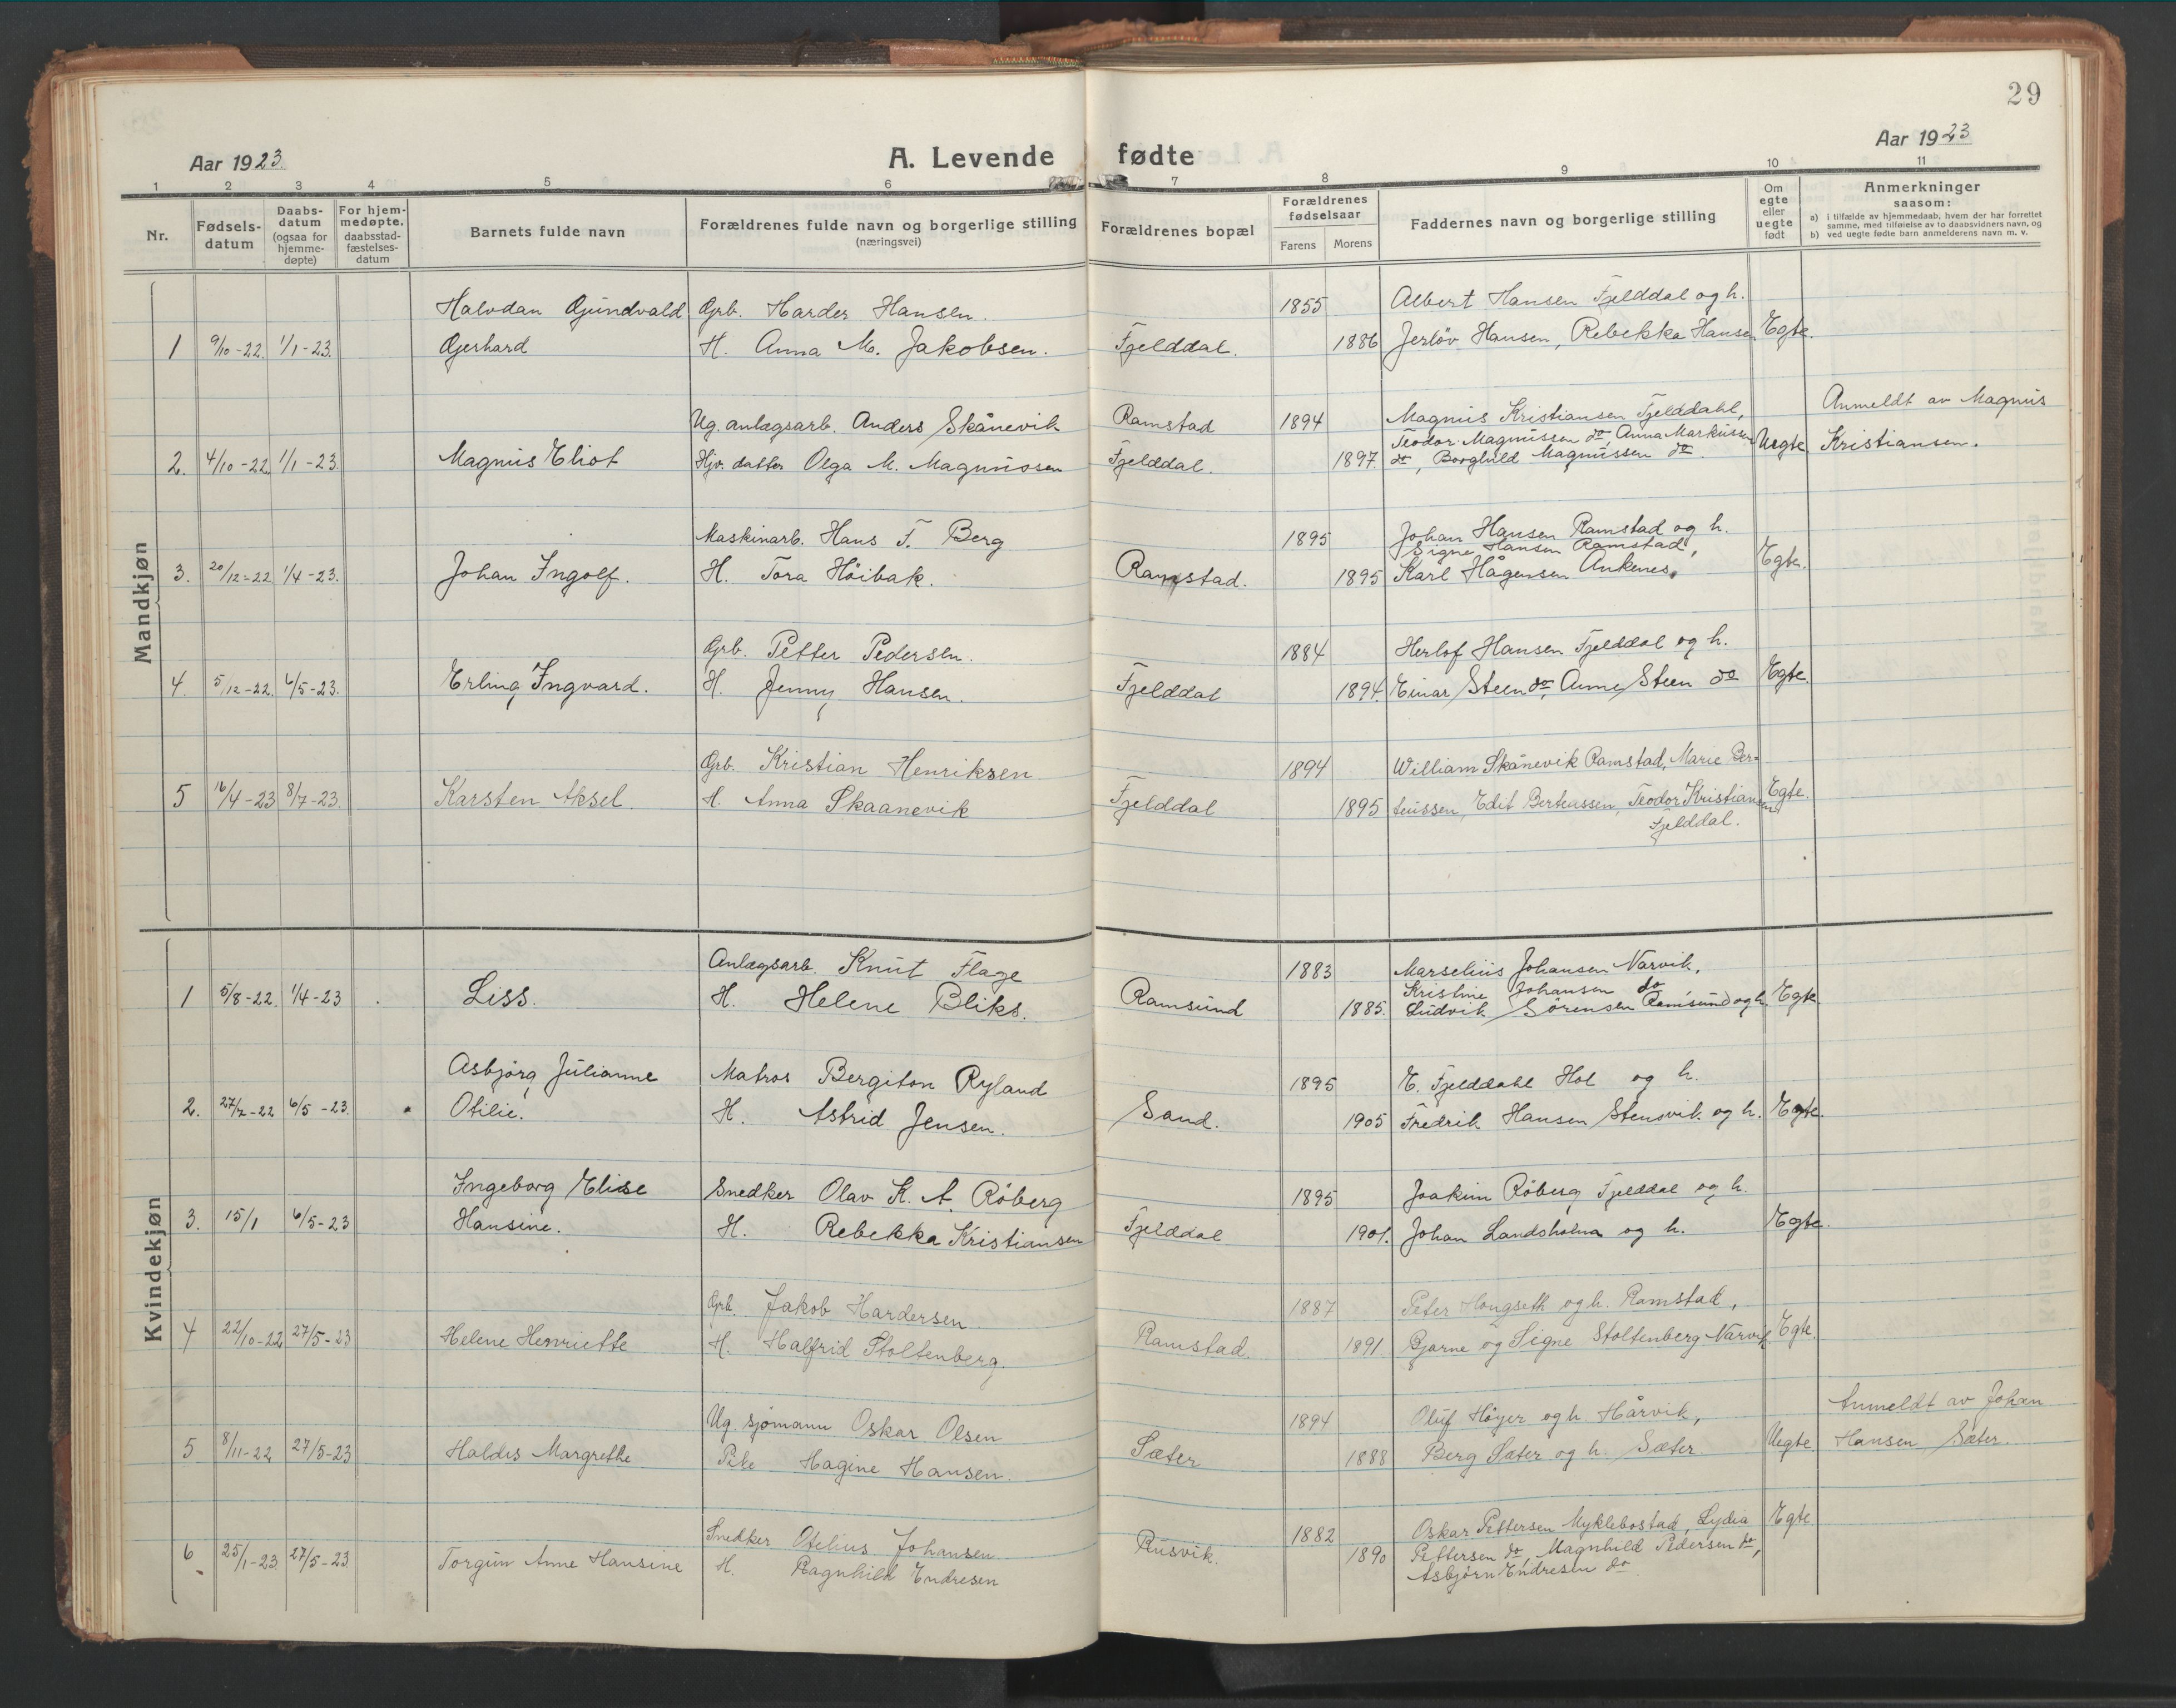 29
Aar 1923.
A. Levende fødte
Aar 1923
1 2 3 4 5 6 7 8 9 10 11
Nr.
Fødsels-
datum
Daabs-
datum
(ogsaa for
hjemme-
døpte)
For hjem-
medøpte.
daabsstad-
fæstelses-
datum
Barnets fulde navn
Forældrenes fulde navn og borgerlige stilling
(næringsvei)
Forældrenes bopæl
Forældrenes
fødselsaar
Farens Morens
Faddernes navn og borgerlige stilling
Om
egte
eller
uegte
født
Anmerkninger
saasom:
a) i tilfælde av hjemmedaab, hvem der har forrettet
samme, med tilføielse av to daabsvidners navn, og
b) ved uegte fødte barn anmelderens navn m. v.
Mandkjøn
Halvdan Gjundvald Grb. Harder Hansen. 1855 Albert Hansen Fjelddal og h.
1 9/10-22. 1/1-23. Gjerhard H. Anna M. Jakobsen. Fjelddal. 1886 Jerløv Hansen, Rebekka Hansen Egte.
Ug. anlægsarb. Anders Skånevik Ramstad 1894 Magnus Kristiansen Fjelddahl, Anmeldt av Magnus
Teodor Magnussen do, Anna Markussen
2. 4/10-22. 1/1-23. Magnus Eliot Gjv. datter Olga M. Magnussen Fjelddal. 1897. do, Borghild Magnussen do. Uegte Kristiansen.
Maskinarb. Hans F. Berg 1895 Johan Hansen Ramstad og h.
Signe Hansen Ramstad,
3. 20/12-22 1/4-23. Johan Ingolf. H. Tora Høibak. Ramstad. 1895 Karl Hågensen Ankenes. Egte.
Grb. Petter Pedersen. 1884 Herlof Hansen Fjelddal og h.
4. 5/12-22. 6/5-23. Erling Ingvard. H. Jenny Hansen. Fjelddal 1894. Einar Steen do, Anne Steen do Egte.
Grb. Kristian Henriksen 1894 William Skånevik Ramstad, Marie Ber-
5 16/4-23 8/7-23. Karsten Aksel. H. Anna Skaanevik Fjelddal 1895 teussen, Edit Berteussen, Teodor Kristiansen Egte.
Fjelddal.
Kvindekjøn
Anlægsarb. Knut Flage 1883 Marselius Johansen Narvik.
Kristine Johansen do
1 5/8-22. 1/4-23 Liss. H. Helene Bliks. Ramsund 1885. Ludvik Sörensen Ramsund og h. Egte.
Asbjörg Julianne Matros Bergiton Ryland 1895 E. Fjelddahl Hol og h.
2. 27/7-22 6/5-23. Otilie. H. Astrid Jensen. Sand. 1905 Fredrik Hansen Stensvik og h. Egte.
Ingeborg Elise Snedker Olav K. A. Röberg 1895 Joakim Röberg Fjelddal og h.
3. 15/1 6/5-23 Hansine. H. Rebekka Kristiansen Fjelddal 1901. Johan Landsholm og h. Egte.
Grb. Jakob Hardersen. 1887 Peter Hongseth og h. Ramstad,
4 22/10-22 27/5-23 Helene Henriette H. Halfrid Stoltenberg. Ramstad. 1891 Bjarne og Signe Stoltenberg Narvik Egte.
Ug. sjömann Oskar Olsen 1894 Oluf Höyer og h. Hårvik, Anmeldt av Johan
5 8/11-22 27/5-23 Haldis Margrethe Pike Hagine Hansen. Sæter 1888 Berg Sæter og h. Sæter. Uegte Hansen Sæter.
Snedker Otelius Johansen 1882 Oskar Pettersen Myklebostad, Lydia Egte
6 25/1-23 27/5-23 Torgun Anne Hansine H. Ragnhild Endresen Rusvik. 1890 Pettersen do, Magnhild Pedersen do,
Asbjørn Endresen do.